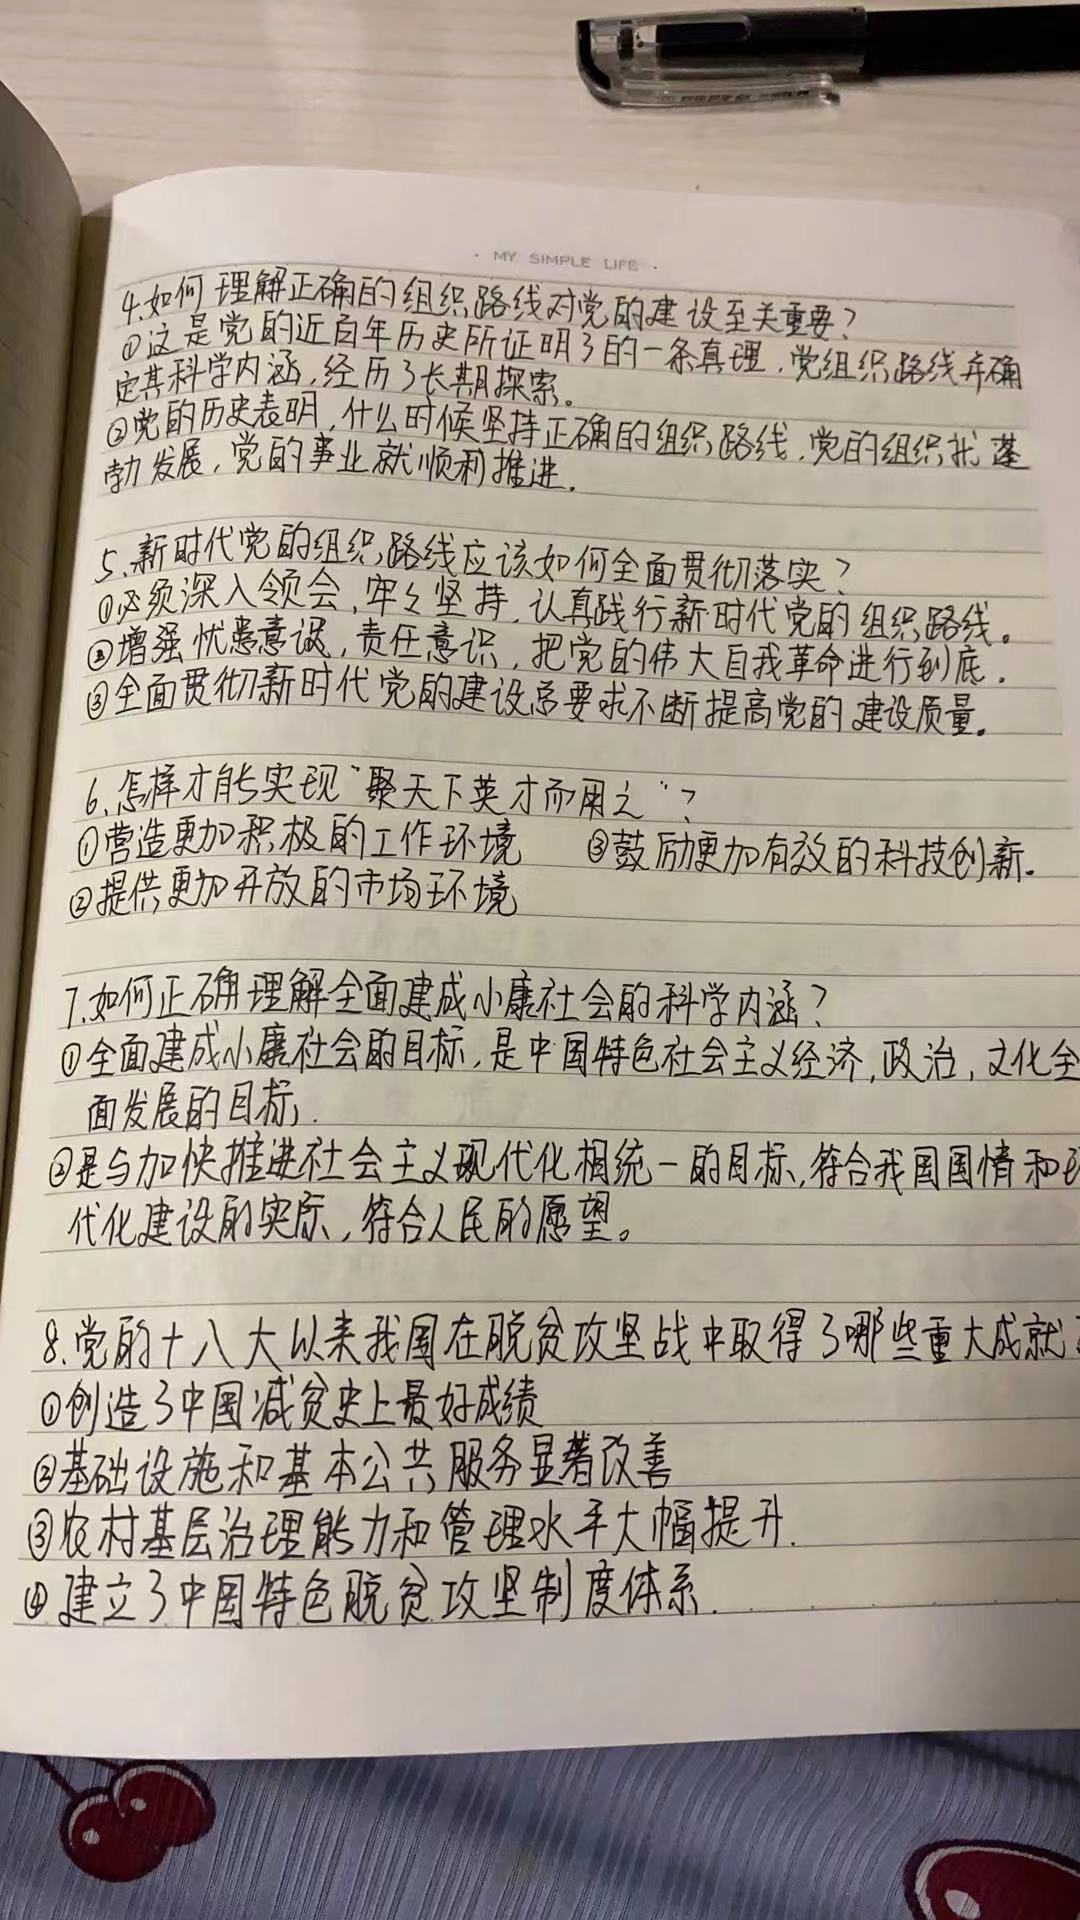 · MY SIMPLE LIFE ·
4.如何理解正确的组织路线对党的建设至关重要?
①这是党的近百年历史所证明了的一条真理,党组织路线并确
定其科学内涵,经历了长期探索。
②党的历史表明,什么时候坚持正确的组织路线,党的组织就蓬
勃发展,党的事业就顺利推进.
5、新时代党的组织路线应该如何全面贯彻落实?
①必须深入领会,牢々坚持,认真践行新时代党的组织路线。
②增强忧患意识,责任意识,把党的伟大自我革命进行到底.
③全面贯彻新时代党的建设总要求不断提高党的建设质量。
6、怎样才能实现“聚天下英才而用之”?
①营造更加积极的工作环境 ③鼓励更加有效的科技创新.
②提供更加开放的市场环境
7.如何正确理解全面建成小康社会的科学内涵?
①全面建成小康社会的目标,是中国特色社会主义经济,政治,文化全
面发展的目标.
②是与加快推进社会主义现代化相统一的目标,符合我国国情和现
代化建设的实际,符合人民的愿望。
8.党的十八大以来我国在脱贫攻坚战中取得了哪些重大成就?
①创造了中国减贫史上最好成绩
②基础设施和基本公共服务显著改善
③农村基层治理能力和管理水平大幅提升.
④建立了中国特色脱贫攻坚制度体系.